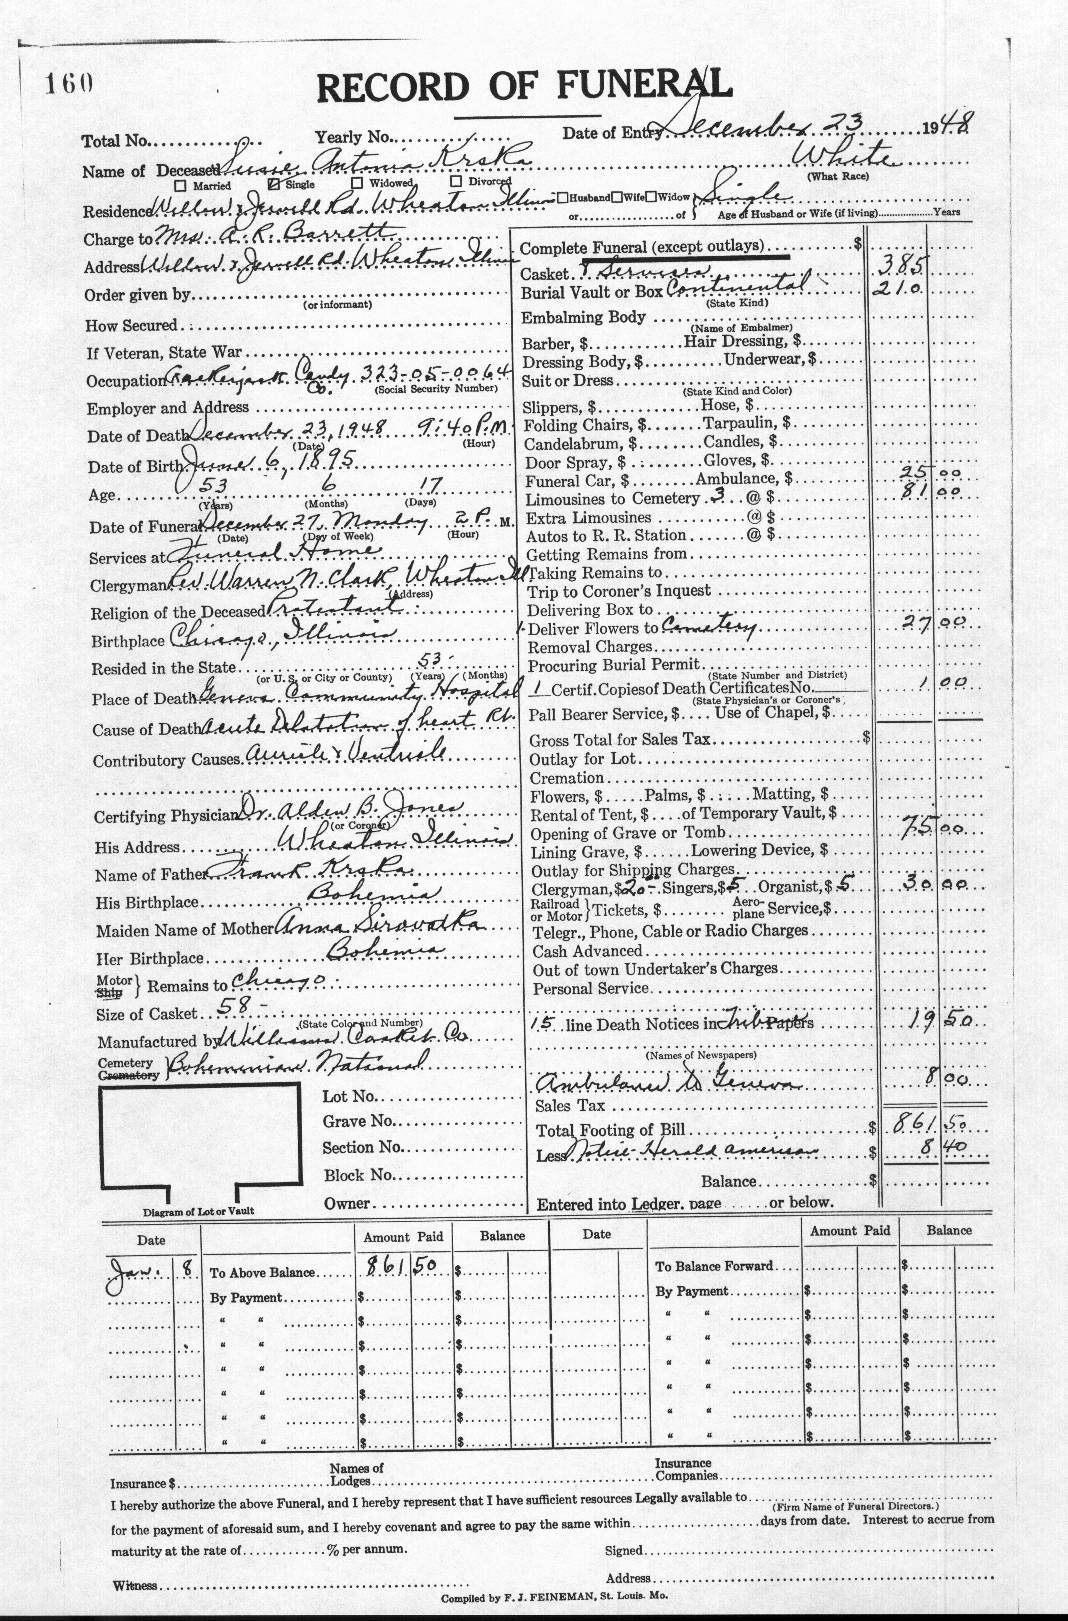 160
RECORD OF FUNERAL
Total No. Yearly No. Date of Entry December 23 1948
Name of Deceased Susie Antonia Krska White
Married Single Widowed Divorced (What Race)
Residence Willow & Jewell Rd. Wheaton, Illinois Husband Wife Widow } Single
or of Age of Husband or Wife (if living) Years
Charge to Mrs. A. R. Barrett
Address Willow & Jewell Rd. Wheaton, Illinois
Order given by
(or informant)
How Secured
If Veteran, State War
Occupation Crackerjack Candy Co. 323-05-0064
(Social Security Number)
Employer and Address
Date of Death December 23, 1948 9:40 P.M.
(Date) (Hour)
Date of Birth June 6, 1895
Age 53 6 17
(Years) (Months) (Days)
Date of Funeral December 27, Monday 2 P. M.
(Date) (Day of Week) (Hour)
Services at Funeral Home
Clergyman Rev. Warren N. Clark, Wheaton Ill
(Address)
Religion of the Deceased Protestant
Birthplace Chicago, Illinois
Resided in the State 53
(or U. S. or City or County) (Years) (Months)
Place of Death Geneva Community Hospital
Cause of Death Acute Dilatation of heart Rt.
Contributory Causes Auricle & Ventricle
Certifying Physician Dr. Alden B. Jones
(or Coroner)
His Address Wheaton, Illinois
Name of Father Frank Krska
His Birthplace Bohemia
Maiden Name of Mother Anna Sirovatka
Her Birthplace Bohemia
Motor Ship } Remains to Chicago
Size of Casket 58-
(State Color and Number)
Manufactured by Williams Casket Co
Cemetery Crematory } Bohemian National
Lot No.
Grave No.
Section No.
Block No.
Owner
Diagram of Lot or Vault
Complete Funeral (except outlays) $
Casket & Services 385
Burial Vault or Box Continental 210
(State Kind)
Embalming Body
(Name of Embalmer)
Barber, $ Hair Dressing, $
Dressing Body, $ Underwear, $
Suit or Dress
(State Kind and Color)
Slippers, $ Hose, $
Folding Chairs, $ Tarpaulin, $
Candelabrum, $ Candles, $
Door Spray, $ Gloves, $
Funeral Car, $ Ambulance, $ 25 00
Limousines to Cemetery 3 @ $ 81 00
Extra Limousines @ $
Autos to R. R. Station @ $
Getting Remains from
Taking Remains to
Trip to Coroner's Inquest
Delivering Box to
1 Deliver Flowers to Cemetery 27 00
Removal Charges
Procuring Burial Permit
(State Number and District)
1 Certif. Copies of Death Certificates No. 1 00
(State Physician's or Coroner's)
Pall Bearer Service, $ Use of Chapel, $
Gross Total for Sales Tax $
Outlay for Lot
Cremation
Flowers, $ Palms, $ Matting, $
Rental of Tent, $ of Temporary Vault, $
Opening of Grave or Tomb 75 00
Lining Grave, $ Lowering Device, $
Outlay for Shipping Charges
Clergyman, $ 20- Singers, $ 5 Organist, $ 5 30 00
Railroad or Motor } Tickets, $ Aeroplane Service, $
Telegr., Phone, Cable or Radio Charges
Cash Advanced
Out of town Undertaker's Charges
Personal Service
15 line Death Notices in Trib Papers 19 50
(Names of Newspapers)
Ambulance to Geneva 8 00
Sales Tax
Total Footing of Bill $ 861 50
Less Notice-Herald American $ 8 40
Balance $
Entered into Ledger, page or below.
Date Amount Paid Balance Date Amount Paid Balance
Jan. 8 To Above Balance 861 50 $ To Balance Forward $
By Payment $ $ By Payment $ $
“ “ $ $ “ “ $ $
“ “ $ $ “ “ $ $
“ “ $ $ “ “ $ $
“ “ $ $ “ “ $ $
“ “ $ $ “ “ $ $
“ “ $ $ “ “ $ $
Insurance $ Names of Lodges Insurance Companies
I hereby authorize the above Funeral, and I hereby represent that I have sufficient resources Legally available to
(Firm Name of Funeral Directors.)
for the payment of aforesaid sum, and I hereby covenant and agree to pay the same within days from date. Interest to accrue from
maturity at the rate of % per annum. Signed
Witness Address
Compiled by F. J. FEINEMAN, St. Louis. Mo.